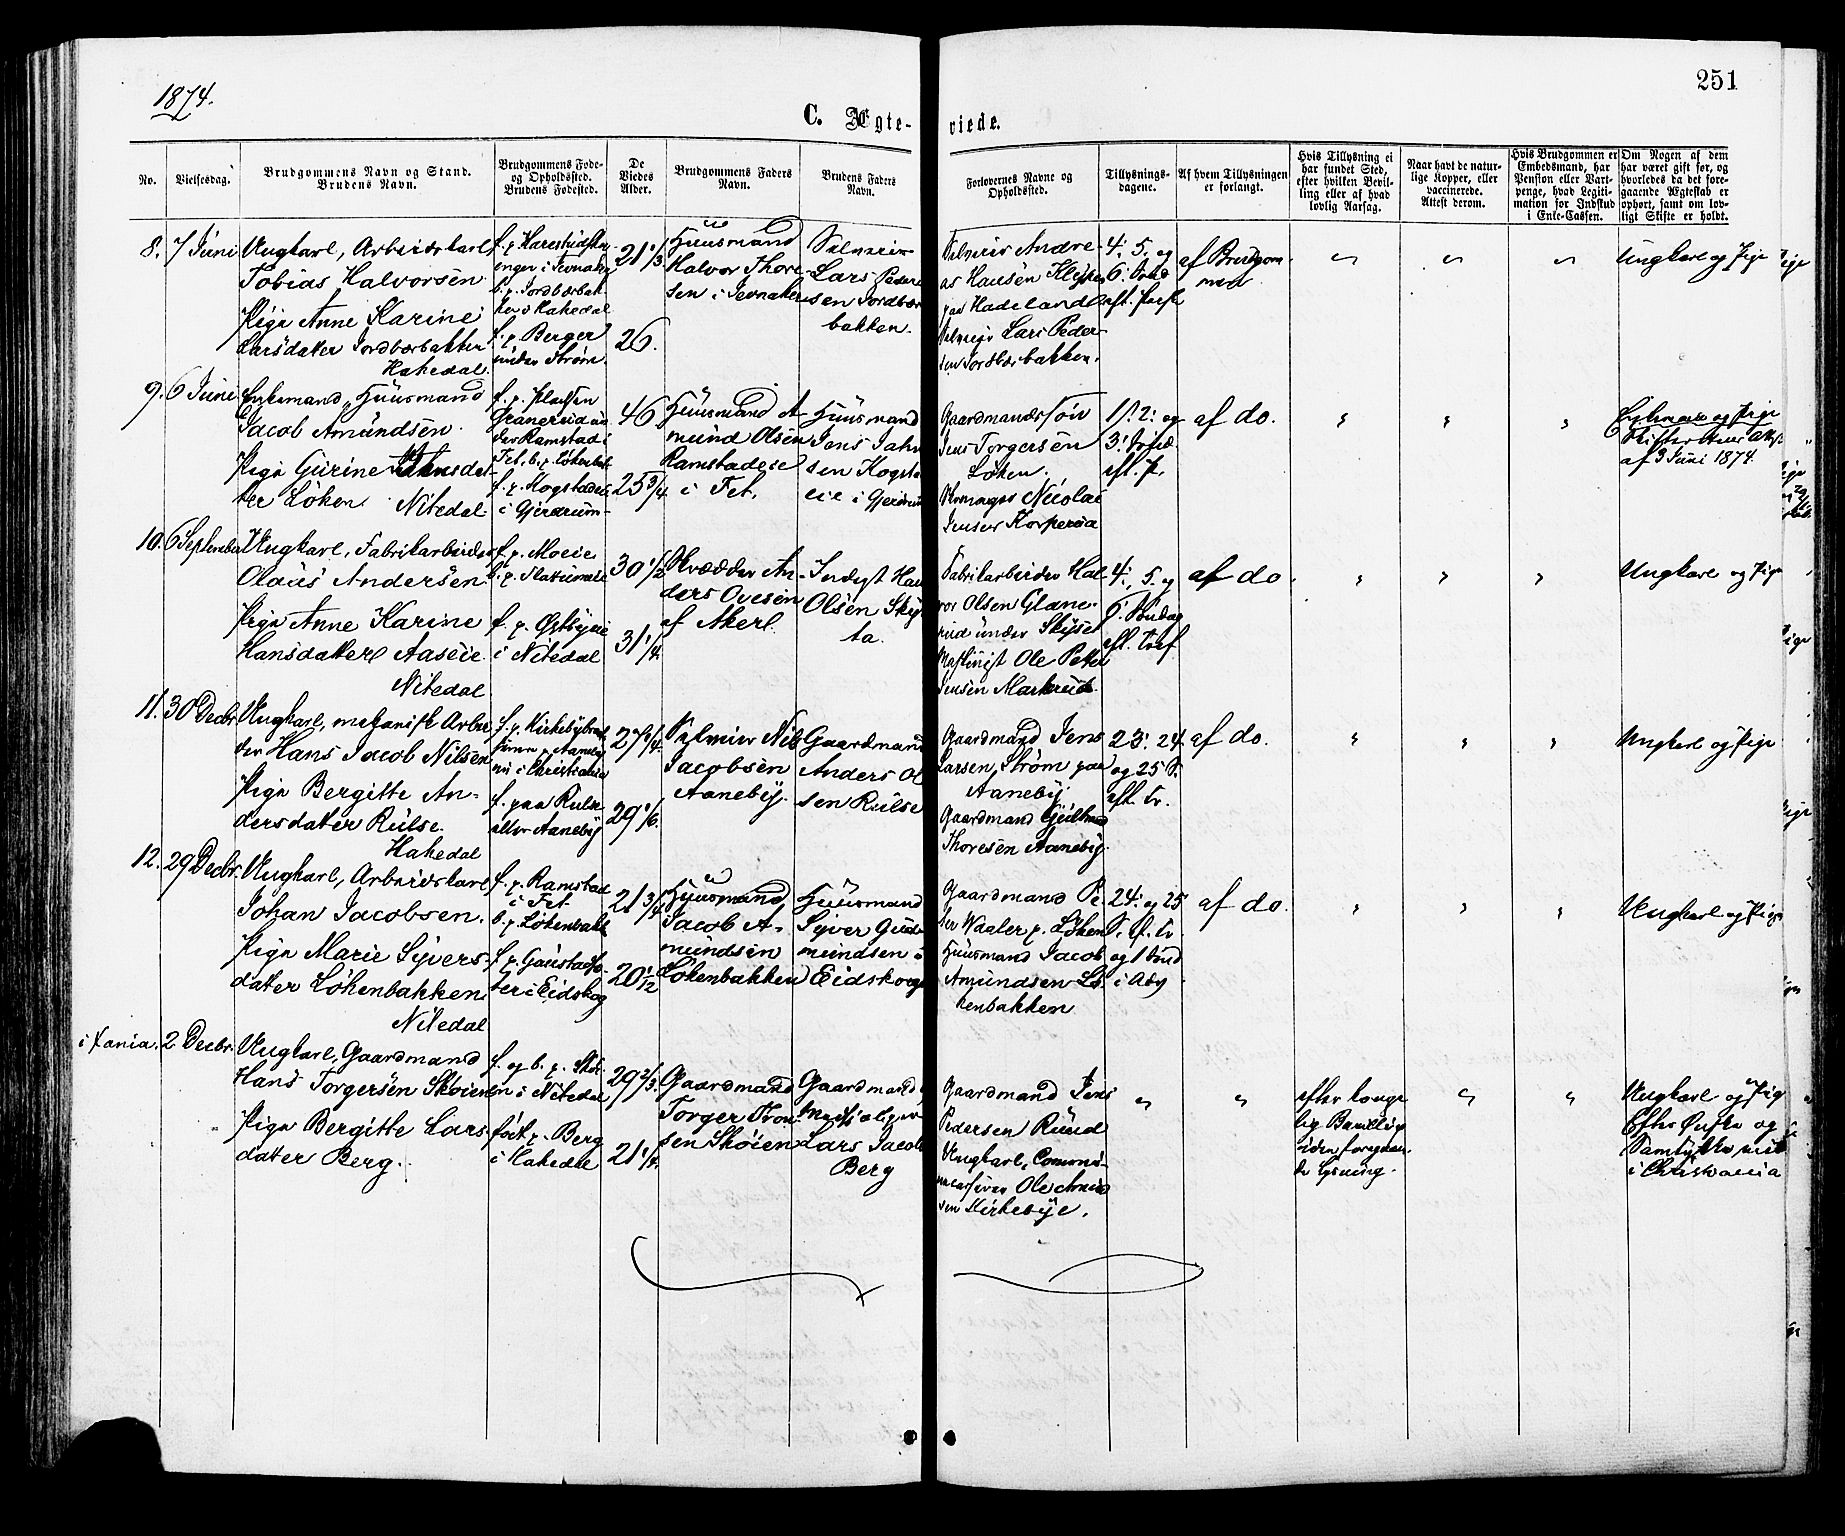 1874.
251
C. Ægte-
viede.
No.
Vielsesdag.
Brudgommens Navn og Stand.
Brudens Navn.
Brudgommens Føde-
og Opholdssted.
Brudens Fødested.
De
Viedes
Alder.
Brudgommens Faders
Navn.
Brudens Faders
Navn.
Forlovernes Navne og
Opholdssted.
Tillysnings-
dagene.
Af hvem Tillysningen
er forlangt.
Hvis Tillysning ei
har fundet Sted,
efter hvilken Bevil-
ling eller af hvad
lovlig Aarsag.
Naar havt de natur-
lige Kopper, eller
vaccinerede.
Attest derom.
Hvis Brudgommen er
Embedsmand, har
Pension eller Vart-
penge, hvad Legiti-
mation for Indskud
i Enke-Cassen.
Om Nogen af dem
har været gift før, og
hvorledes da det fore-
gaaende Ægteskab er
ophørt, samt om lov-
ligt Skifte er holdt.
8. 7 Juni
Ungkarl, Arbeidskarl
Tobias Halvorsen
Pige Anne Karine
Larsdatter Jordbærbakken
Hakedal.
i Jevnaker
b. p. Jordbærbak-
ken i Hakedal
f. p. Berger
under Strøm.
21 1/3
26.
Huusmand
Halvor Thore-
sen i Jevnaker
Selveier
Lars Peder-
sen Jordbær-
bakken.
Selveier Andre-
as Hansen
paa Hadeland
Selveier Lars Peder-
sen Jordbærbakken.
4. 5. og
6. Sønd
eft. Paask
af Brudgom-
men
Ungkarl og Pige
9. 6 Juni
Enkemand, Huusmand
Jacob Amundsen.
Pige Gurine Jahnsdat-
ter Løken. Nitedal
f. p. Pladsen
Granerud un-
der Ramstad i
Fet. b. p. Løkenbak
f. p. Kogstadeie
i Gjerdrum
46
25 3/4
Huusmand A-
mund Olsen
Ramstadeie
i Fet.
Huusmand
Jens Jahn-
sen Kogstad-
eie i Gjerdrum
Gaardmandssøn
Jens Torgersen
Løken.
Skomager Nicolai
Jensen Korperøa
1. 2. og
3. Sønd.
eft. P.
af do.
Enkemand og Pige
Skifteattest
af 3 Juni 1874.
10. 6 September
Ungkarl, Fabrikarbeider
Olaus Andersen
Pige Anne Karine
Hansdatter Aaseie.
Nitedal.
f. p. Moeie
b. p. Slatumeie
f. p. Østbyeie
i Nitedal
30 1/2
31 1/4.
Skrædder An-
ders Ovesen
af Aker.
Inderst Hans
Olsen Sky-
ta.
Fabrikarbeider Hal-
vor Olsen Glane-
rud under Skyset
Maskinist Ole Peter
Jensen Markerud.
4. 5. og
6. Søndag
eft. Tref
af do.
Ungkarl og Pige
11. 30 Decbr.
Ungkarl, mekanisk Arbei-
der Hans Jacob Nilsen
Pige Bergitte An-
dersdatter Rulse.
Hakedal
nu i Christiania
f. paa Rulse
eller Aaneby
27 1/4.
29 1/6.
Selveier Nils
Jacobsen
Aaneby.
Gaardmand
Anders Ol-
sen Rulse
Gaardmand Jens
Larsen Strøm paa
Aaneby
Gaardmand
Thoresen Aaneby.
23. 24.
og 25 S.
eft. Tr.
af do.
Ungkarl og Pige
12. 29 Decbr.
Ungkarl, Arbeidskarl
Johan Jacobsen.
Pige Marie Syvers-
datter Løkenbakken
Nitedal
f. p. Ramstad
i Fet.
b. p. Løkenbakk
i Eidskog
21 3/4
20 1/12
Huusmand
Jacob A-
mundsen
Løkenbakken
Huusmand
Syver Gud-
mundsen i
Eidskog
Gaardmand Pe-
der Waaler p. Løken
Huusmand Jacob
Amundsen Lø-
kenbakken
24. og 25
S. e. Tr.
og 1 Sønd
i Adv
af do.
Ungkarl og Pige
i Xania. 2 Decbr.
Ungkarl, Gaardmand
Hans Torgersen Skøien
Pige Bergitte Lars-
datter Berg.
f. og b. p. Skøi-
en i Nitedal
født p. Berg
i Hakedal
29 2/3.
21 1/4.
Gaardmand
Torger Tron-
sen Skøien
Gaardmand
Lars Jacob
Berg
Gaardmand Jens
Pedersen Ruud
Ungkarl,
Ole Arne-
sen Kirkebye.
efter konge-
lig Bevilling
uden foregaaen-
de Lysning.
Ungkarl og Pige
Efter Ønske og
Samtykke viet
i Christiania